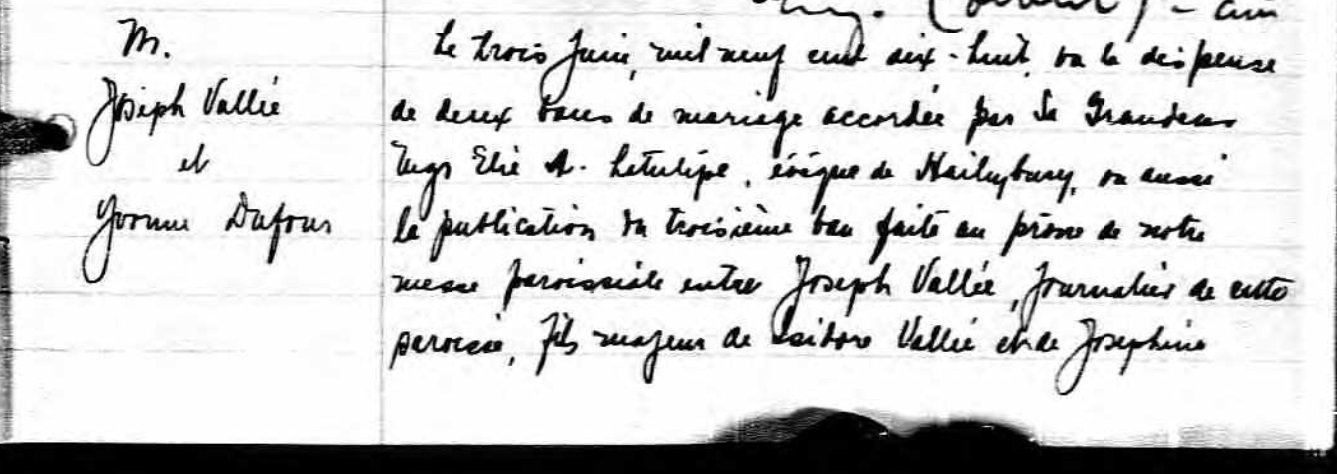 M.
Joseph Vallée
et
Yvonne Dufour
Le trois Juin, mil neuf cent dix-huit, vu la dispense
de deux bans de mariage accordée par Sa Grandeur
Mgr Elie A. Latulipe, évêque de Haileybury, vu aussi
la publication du troisième ban faite au prône de notre
messe paroissiale entre Joseph Vallée, Journalier de cette
paroisse, fils majeur de Isidore Vallée et de Josephine